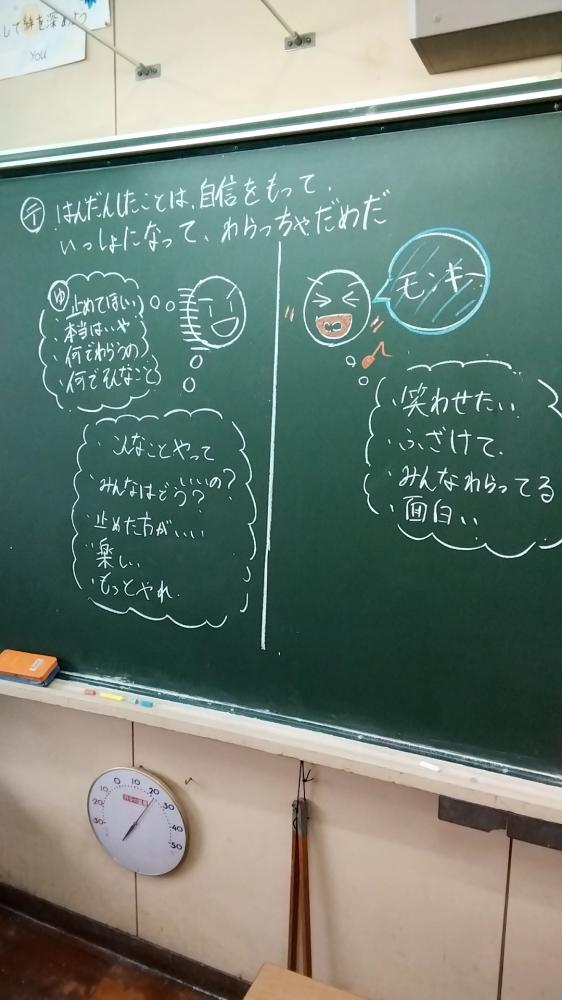 して絆を深めよう
YOU
テ はんだんしたことは、自信をもって、
いっしょになって、わらっちゃだめだ
ゆ 止めてほしい
・本当はいや
・何でわらうの
・何でそんなこと
・こんなことやって
いいの?
・みんなはどう?
・止めた方がいい
・楽しい
・もっとやれ
モンキー
・笑わせたい
・ふざけて
・みんなわらってる
・面白い
-30 -20 -10 0 10 20 30 40 50